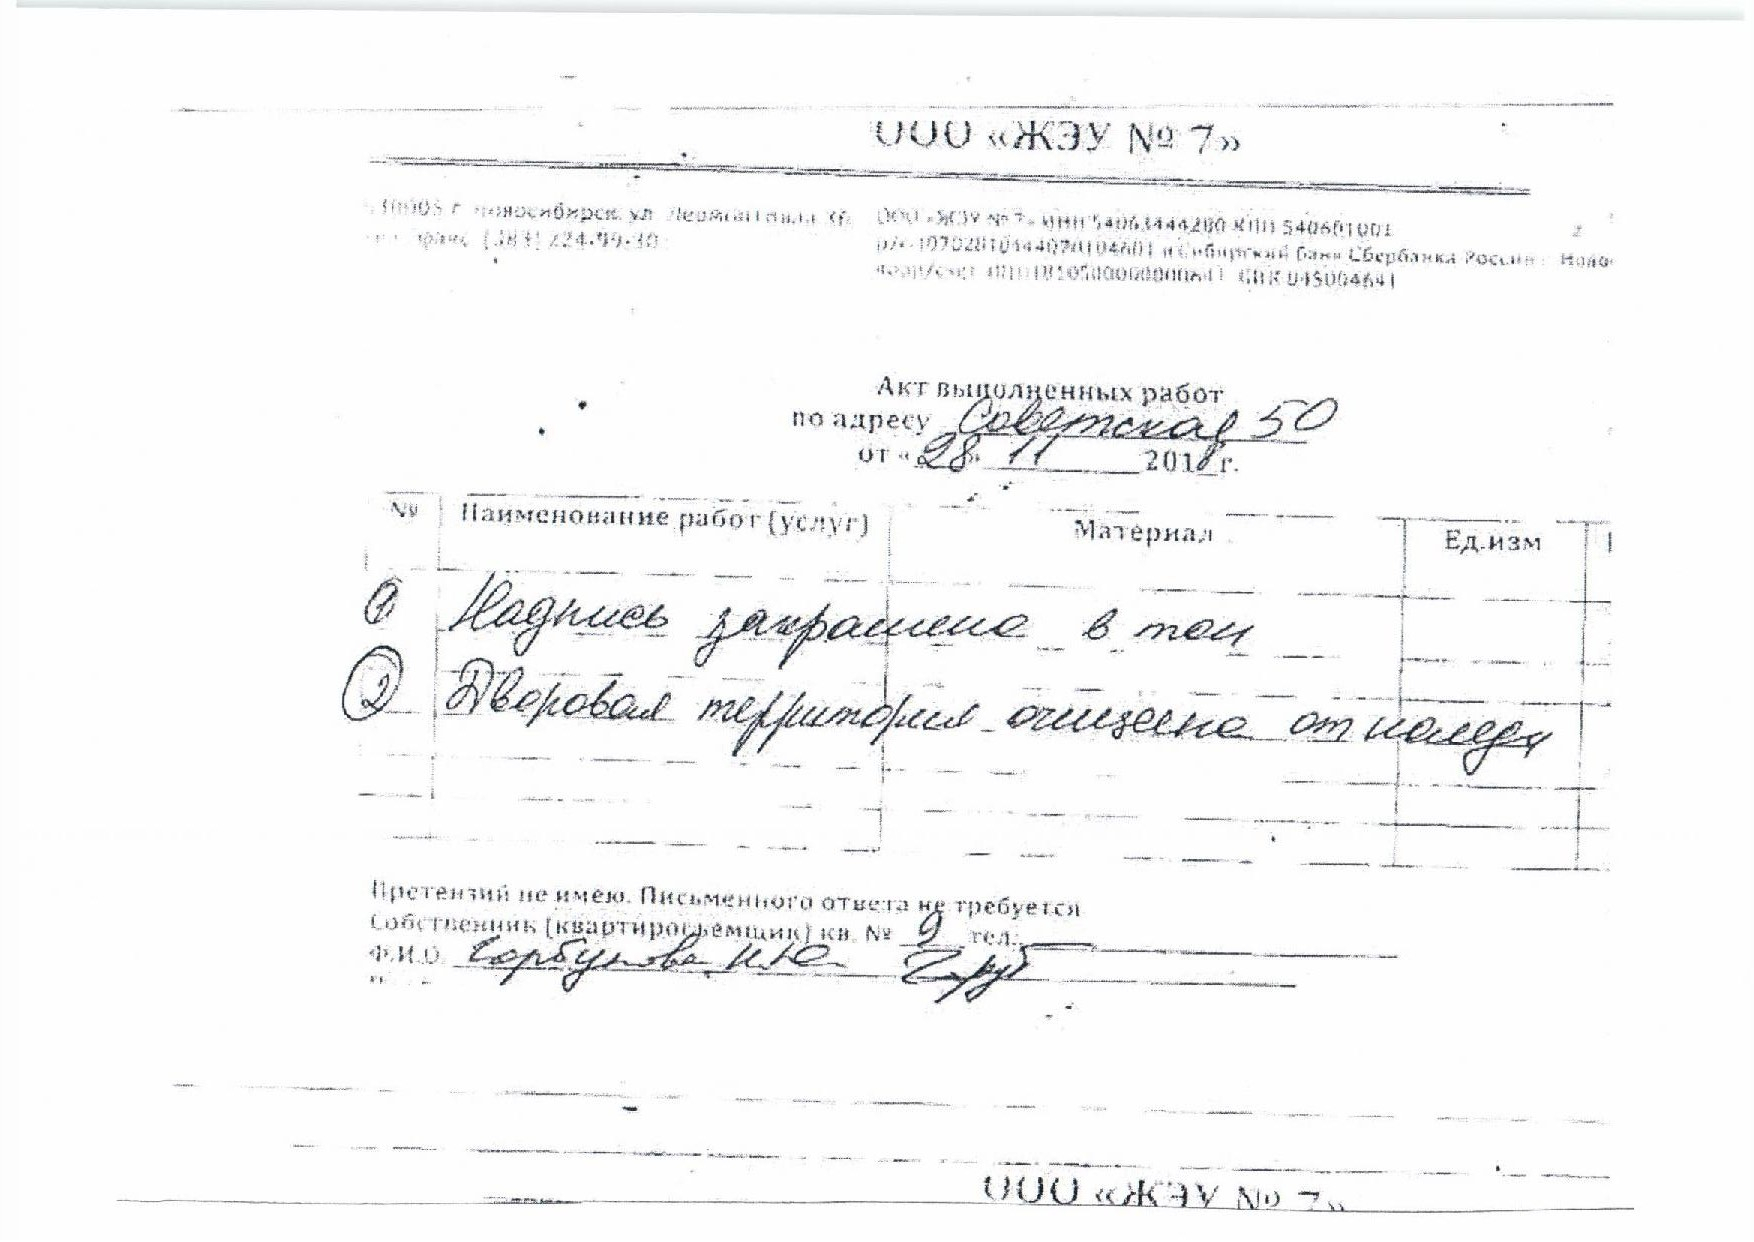 ООО «ЖЭУ № 7»
г. Новосибирск, ул.
224-99-30
ООО «ЖЭУ № 7» ИНН 54063444280 КПП 540601001
в Сибирский банк Сбербанка России г. Ново
БИК 045004641
Акт выполненных работ
по адресу Советская 50
от «28» 11 2018 г.
№ Наименование работ (услуг) Материал Ед.изм
1 Надпись закрашена в тон
2 Дворовая территория очищена от наледи
Претензий не имею. Письменного ответа не требуется
Собственник (квартиросъемщик) кв. № 9 тел.:
Ф.И.О. Горбунова Н.Ю.
ООО «ЖЭУ № 7»